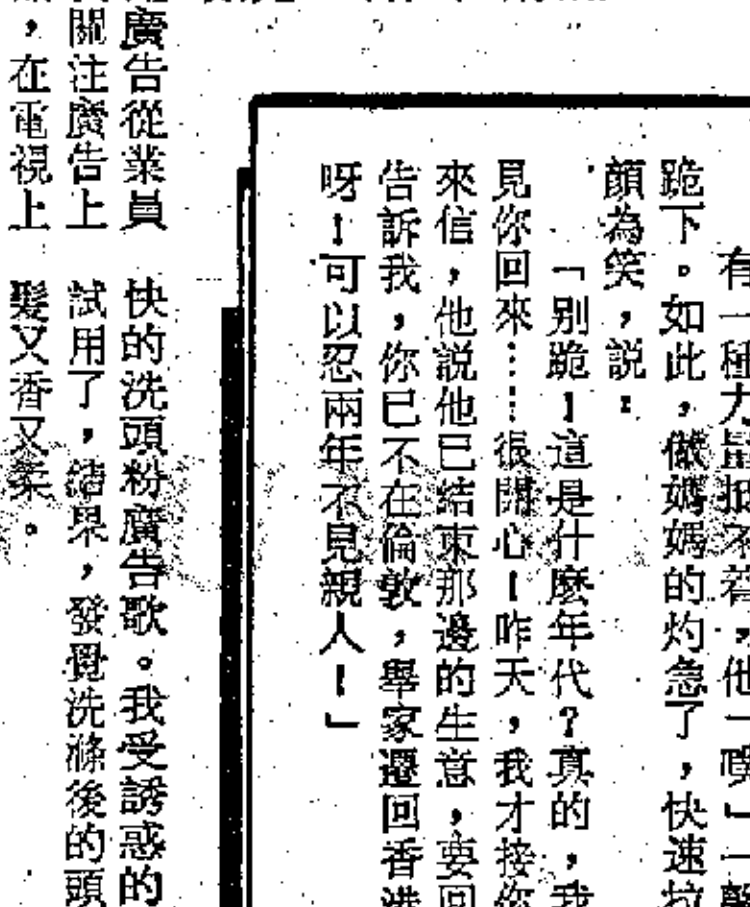 有一種力
他一噗」一聲
跪下。如此，做媽媽的灼急了，快速拉
顏為笑，説：
「别跪！這是什麼年代？真的，我
見你回來……很開心！昨天，我才接你
來信，他説他已結束那邊的生意，要回
告訴我，你已不在倫敦，舉家遷回香港
呀！可以忍兩年不見親人！」
廣告從業員
關注廣告上
，在電視上
快的洗頭粉廣告歌。我受誘惑的
試用了，結果，發覺洗滌後的頭
髮又香又柔。